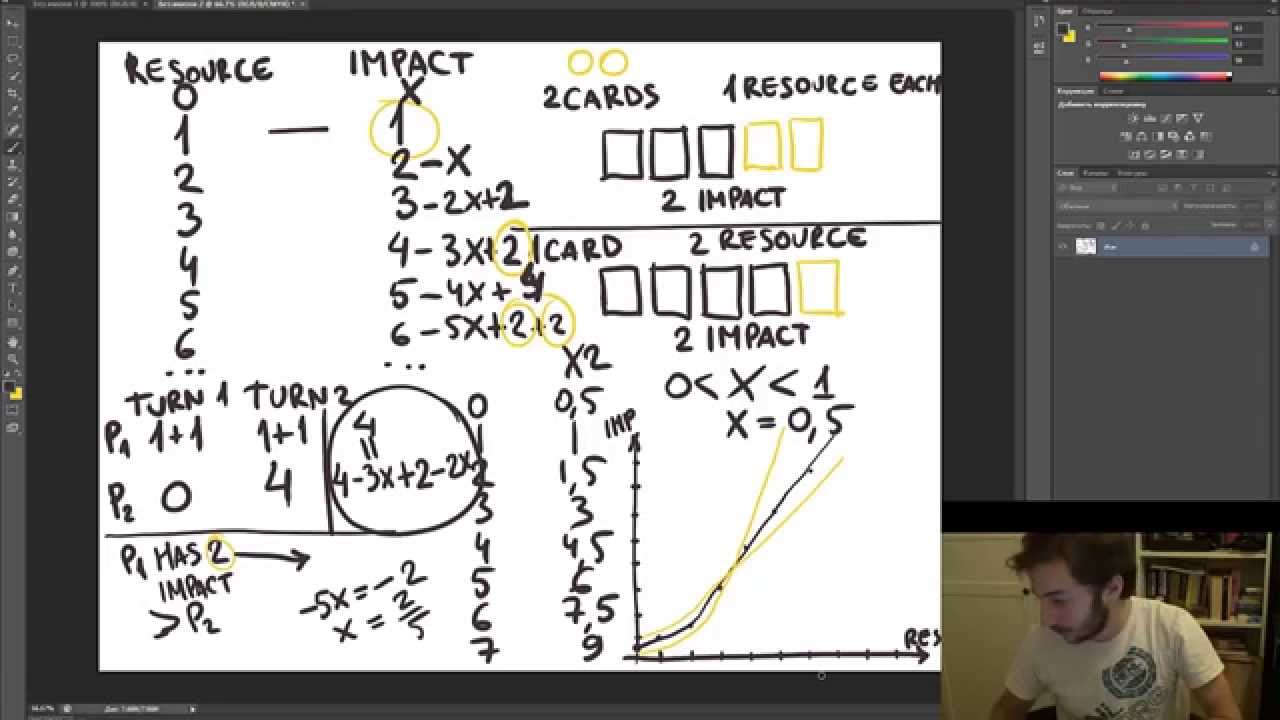 RESOURCE IMPACT
0 X
1 — 1
2 2-X
3 3-2X+2
4 4-3X+2
5 5-4X+
6 6-5X+2+2
... ...
2 CARDS 1 RESOURCE EACH
2 IMPACT
1 CARD 2 RESOURCE
2 IMPACT
0<X<1
X=0,5
TURN 1 TURN 2
P1 1+1 1+1
P2 0 4
4
=
4-3X+2-2X
P1 HAS 2
IMPACT
> P2
-5X=-2
X=2/5
X2
0 0,5
1 1
2 1,5
3 3
4 4,5
5 6
6 7,5
7 9
IMP
RES
Цвет Образцы
Коррекция Стили
Добавить корректировку
Слои Каналы Контуры